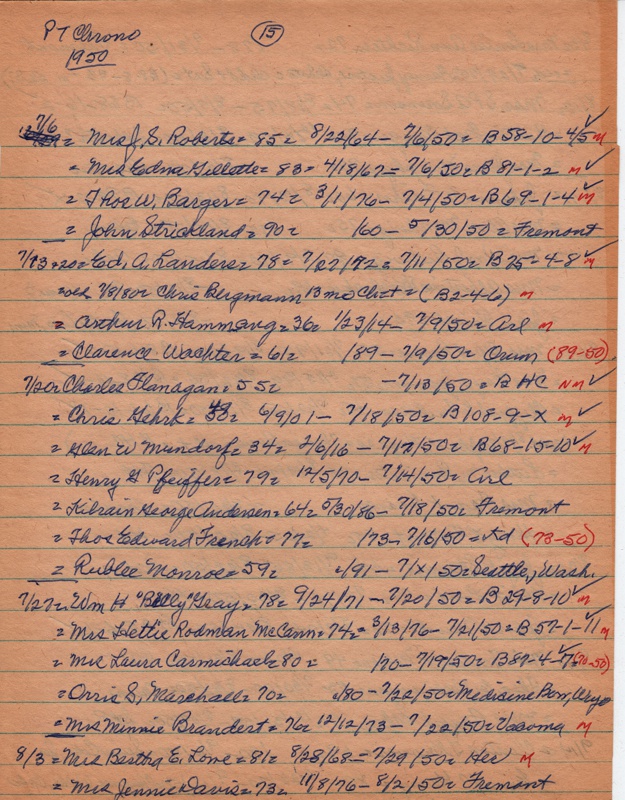 PT Chrono (15)
1950
7/6 = Mrs J. S. Roberts = 85 = 8/22/64 – 7/6/50 = B 58-10-4/5 ✓ M
= Mrs Edna Gillotte = 83 = 4/18/67 = 7/6/50 = B 81-1-2 M ✓
= Thos W. Barger = 74 = 3/1/76 – 7/4/50 = B 69-1-4 ✓ M
= John Strickland = 90 = /60 – 5/30/50 = Fremont
7/13 = Ed. A. Landers = 78 = 7/27/72 = 7/11/50 = B 25-4-8 ✓ M
7/8/80 Chris Bergmann 13 mo = (B2-4-6) M
= Arthur R. Hammang = 36 = 1/23/14 – 7/9/50 = Arl M
= Clarence Wachter = 61 = /89 – 7/9/50 = Orum (89-50)
7/20 = Charles Flanagan = 55 = – 7/13/50 = B HC NM ✓
= Chris Gehrk = 6/9/01 – 7/18/50 = B 108-9-X M ✓
= Glen W Mundorf = 34 = 2/6/16 – 7/17/50 = B 68-15-10 ✓ M
= Henry G Pfeiffer = 79 = 12/5/70 – 7/14/50 = Arl
= George Andersen = 64 = 5/30/86 – 7/18/50 = Fremont
= Thos Edward French = 77 = /73 – 7/16/50 = (73-50)
= Rublee Monroe = 59 = /91 – 7/X/50 = Seattle, Wash.
7/27 = Wm H "Billy" Gray = 78 = 9/24/71 – 7/20/50 = B 29-8-10 ✓ M
= Mrs Hettie Rodman McCann = 74 = 3/13/76 – 7/21/50 = B 57-1-11 ✓ M
= Mrs Laura Carmichael = 80 = /70 – 7/19/50 = B 87-4-7 ✓ (70-50)
= Orris S. Marshall = 70 = /80 – 7/22/50 = Medicine Bow, Wyo
= Mrs Minnie Brandert = 76 = 12/12/73 – 7/22/50 = Vacoma M
8/3 = Mrs Bertha E. Lowe = 81 = 8/28/68 – 7/29/50 = Her M
= Mrs Jennie Davis = 73 = 11/8/76 – 8/2/50 = Fremont